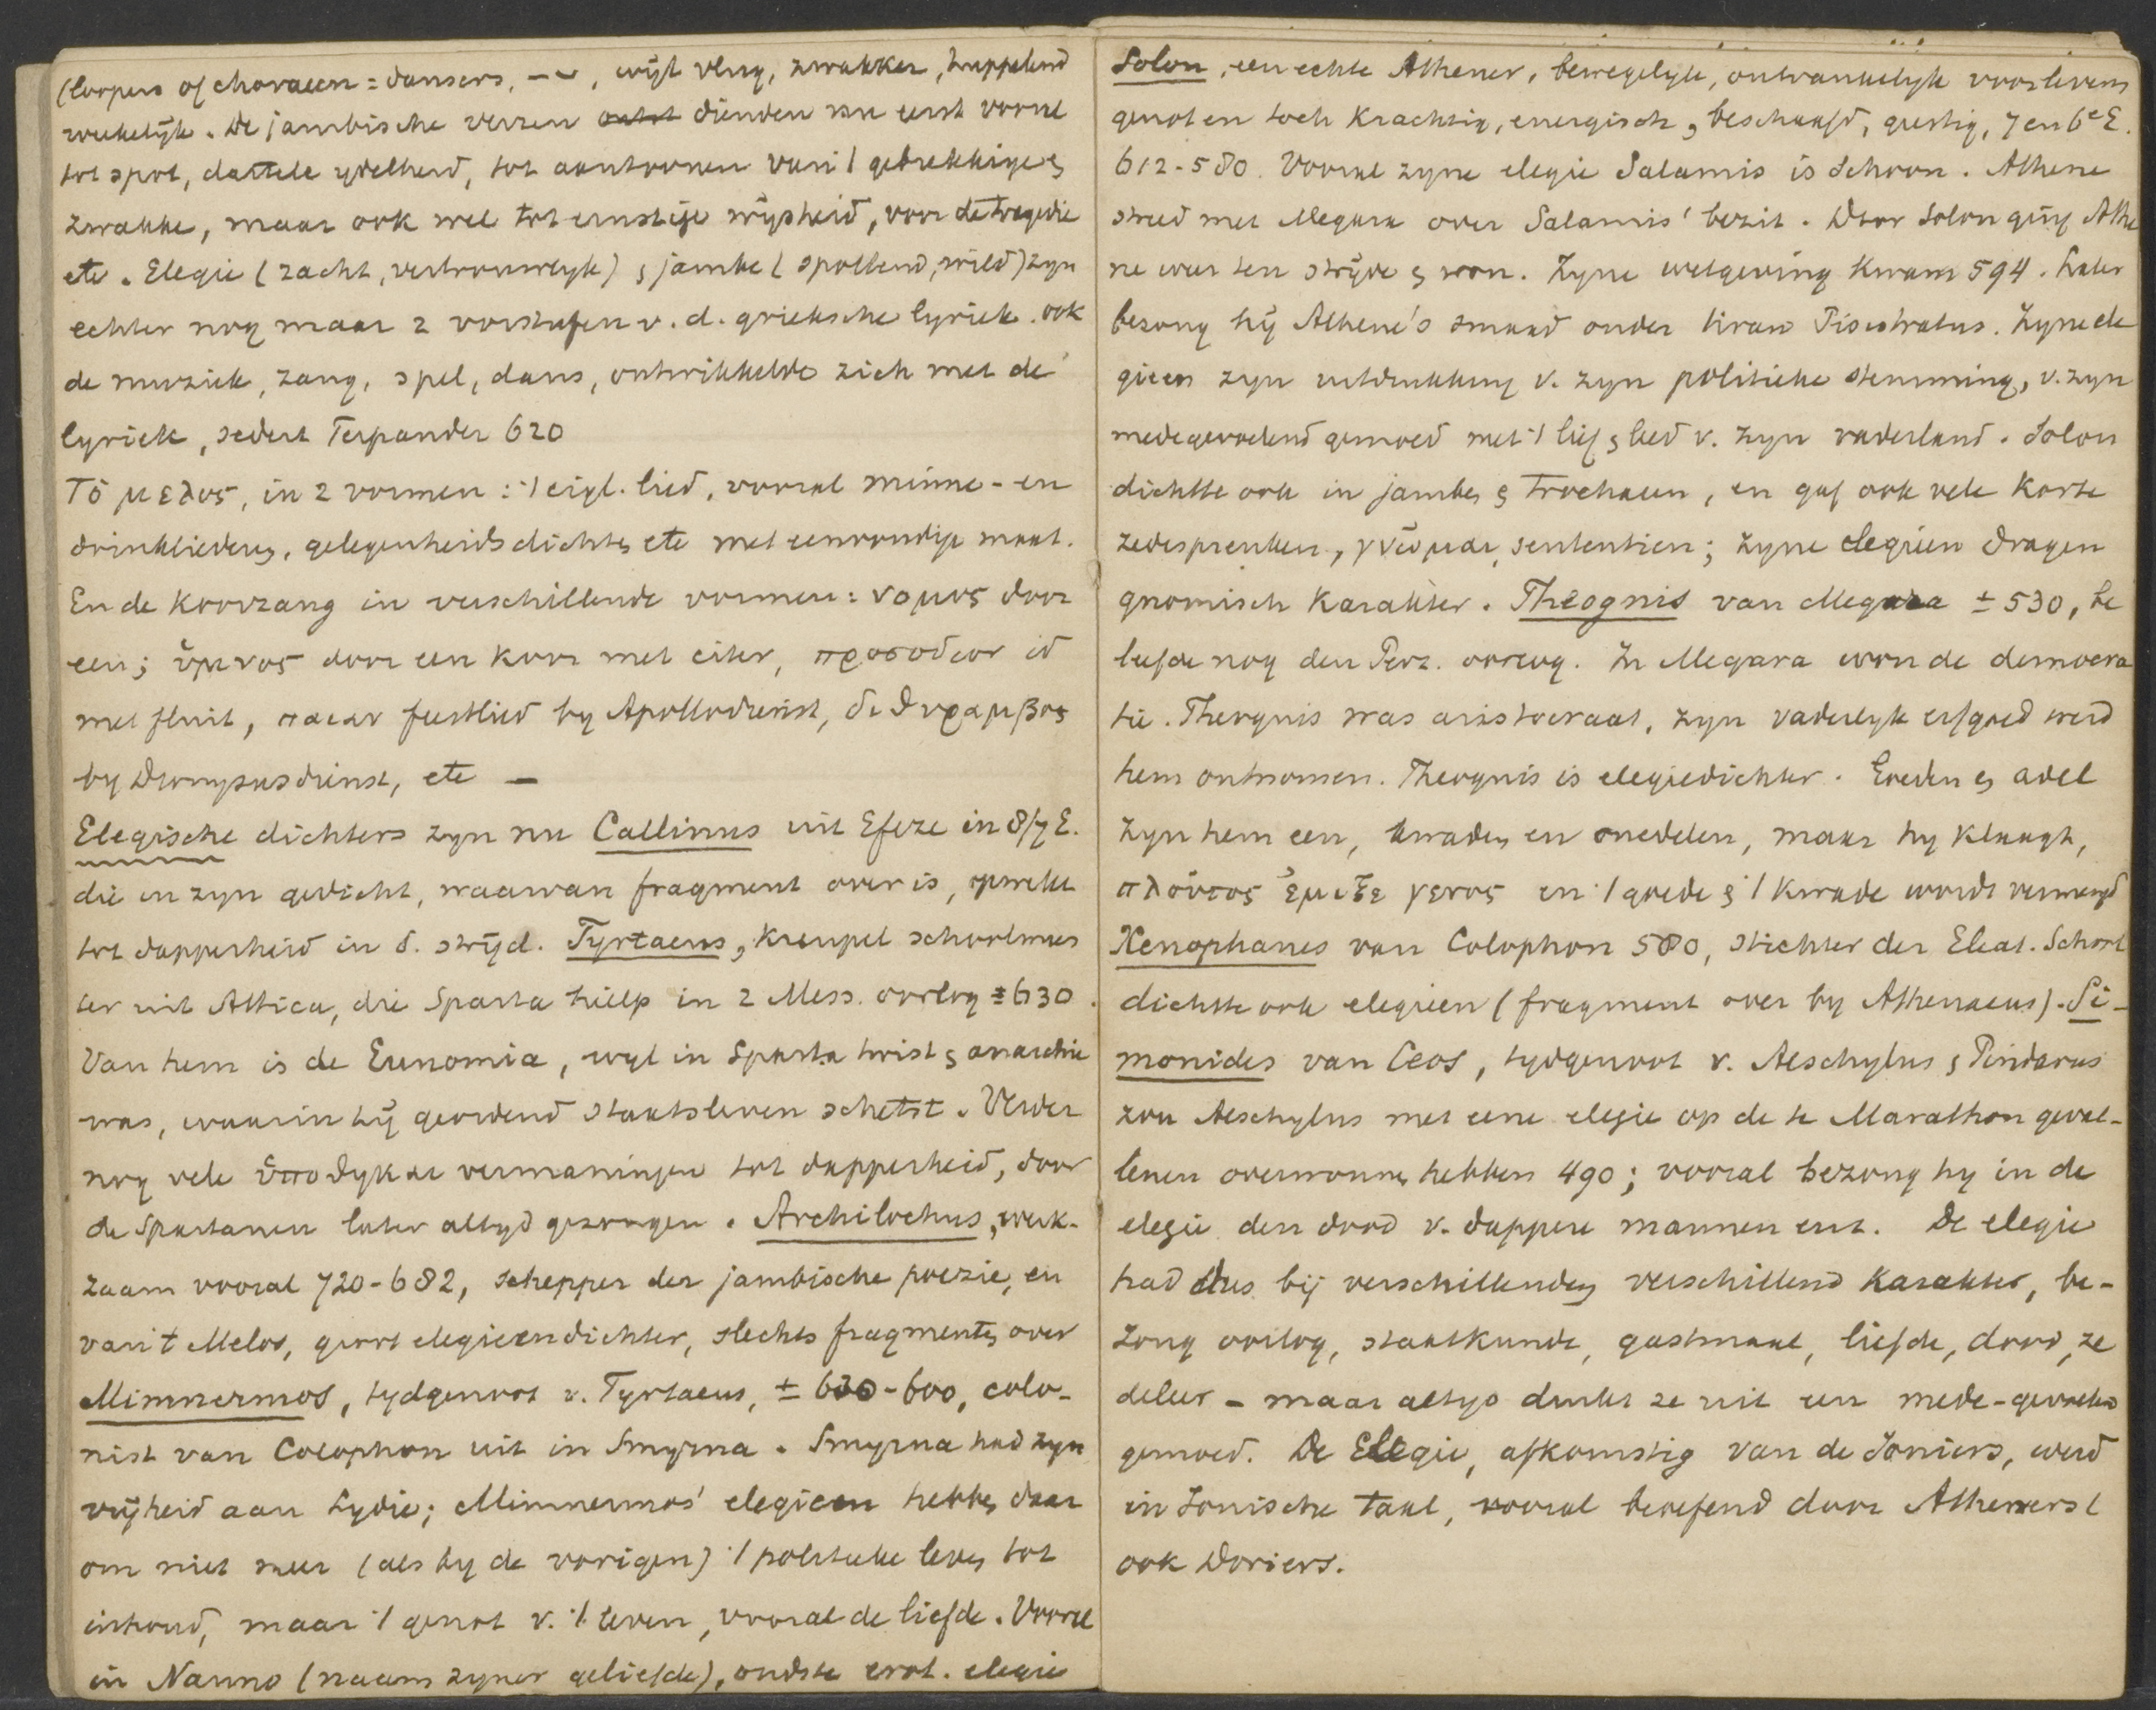 (loopers of choraeen = dansers, –⏑, wijl vlug, zwakker, huppelend
wekelijk. De jambische verzen dienden nu eerst vooral
tot spot, dartele ydelheid, tot aantoonen van 't gebrekkige &
zwakke, maar ook wel tot ernstige wijsheid, voor de tragedie
etc. Elegie (zacht, vertrouwelyk) & jambe (spottend, wild) zyn
echter nog maar 2 voorstufen v. d. grieksche lyriek. ook
de muziek, zang, spel, dans, ontwikkelde zich met de
lyriek, sedert Terpander 620
Τὸ μελος, in 2 vormen: 't eigl. lied, vooral minne- en
drinkliederen, gelegenheidsdichten etc met eenvoudige maat.
En de koorzang in verschillende vormen: νομος door
een; ὕμνος door een koor met citer, προσοδιον id
met fluit, παιαν feestlied by Apollodienst, διθυραμβος
by Dionysusdienst, etc –
Elegische dichters zyn nu Callinus uit Efeze in 8/7 E.
die in zyn gedicht, waarvan fragment over is, opwekt
tot dapperheid in d. strijd. Tyrtaeus, kreupel schoolmees
ter uit Attica, die Sparta hielp in 2 Mess. oorlog ± 630.
Van hem is de Eunomia, wyl in Sparta twist & anarchie
was, waarin hij geordend staatsleven schetst. Verder
nog vele ὑποθηκαι vermaningen tot dapperheid, door
de Spartanen later altyd gezongen. Archilochus, werk-
zaam vooral 720-682, schepper der jambische poezie, en
van 't Melos, groot elegieendichter, slechts fragmenten over
Mimnermos, tydgenoot v. Tyrtaeus, ± 630-600, colo-
nist van Colophon uit in Smyrna. Smyrna had zyn
vrijheid aan Lydie; Mimnermos' elegieen hebben daar
om niet meer (als by de vorigen) 't politieke leven tot
inhoud, maar 't genot v. 't leven, vooral de liefde. Vooral
in Nanno (naam zyner geliefde), oudste erot. elegie
Solon, een echte Athener, bewegelyk, ontvankelyk voor levens
genot en toch krachtig, energisch, beschaafd, geestig, 7 en 6e E.
612-580. Vooral zyne elegie Salamis is schoon. Athene
streed met Megara over Salamis' bezit. Door Solon ging Athe
ne weer ten strijde & won. Zyne wetgeving kwam 594. Later
bezong hij Athene's smaad onder tiran Pisistratus. Zyne ele
gieen zyn uitdrukking v. zyn politieke stemming, v. zyn
medegevoelend gemoed met 't lief & leed v. zyn vaderland. Solon
dichtte ook in jamben & trochaeen, en gaf ook vele korte
zedespreuken, γνῶμαι, sententien; zyne elegieen dragen
gnomisch karakter. Theognis van Megara ± 530, be
leefde nog den Perz. oorlog. In Megara won de democra
tie. Theognis was aristocraat, zyn vaderlyk erfgoed werd
hem ontnomen. Theognis is elegiedichter. Goeden & adel
zyn hem een, kwaden en onedelen, maar hy klaagt,
πλοῦτος ἔμιξε γενος en 't goede & 't kwade wordt vermengd
Xenophanes van Colophon 580, stichter der Eleat. School
dichtte ook elegieen (fragment over by Athenaeus). Si-
monides van Ceos, tydgenoot v. Aeschylus & Pindarus
zou Aeschylus met eene elegie op de te Marathon geval-
lenen overwonnen hebben 490; vooral bezong hy in de
elegie den dood v. dappere mannen enz. De elegie
had dus bij verschillenden verschillend karakter, be-
zong oorlog, staatkunde, gastmaal, liefde, dood, ze
deleer – maar altyd drukt ze uit een mede-gevoelend
gemoed. De Elegie, afkomstig van de Joniers, werd
in Jonische taal, vooral beoefend door Atheners &
ook Doriers.